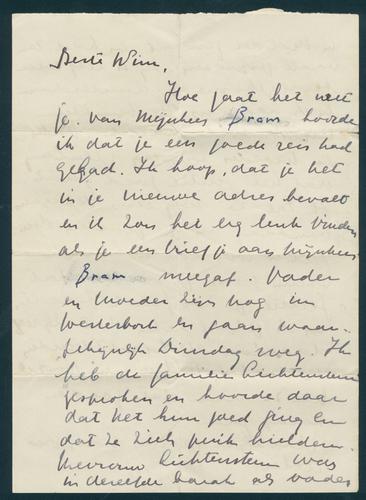 Beste Wim,
Hoe gaat het met
je. van Mijnheer Bram hoorde
ik dat je een goede reis had
gehad. Ik hoop, dat je het
in je nieuwe adres bevalt
en ik zou het erg leuk vinden
als je een briefje aan Mijnheer
Bram meegaf. Vader
en Moeder zijn nog in
Westerbork en gaan waar-
schijnlijk Dinsdag weg. Ik
heb de familie Lichtenstein
gesproken en hoorde daar
dat het hun goed ging en
dat ze zich flink hielden.
Mevrouw Lichtenstein was
in dezelfde barak als vader